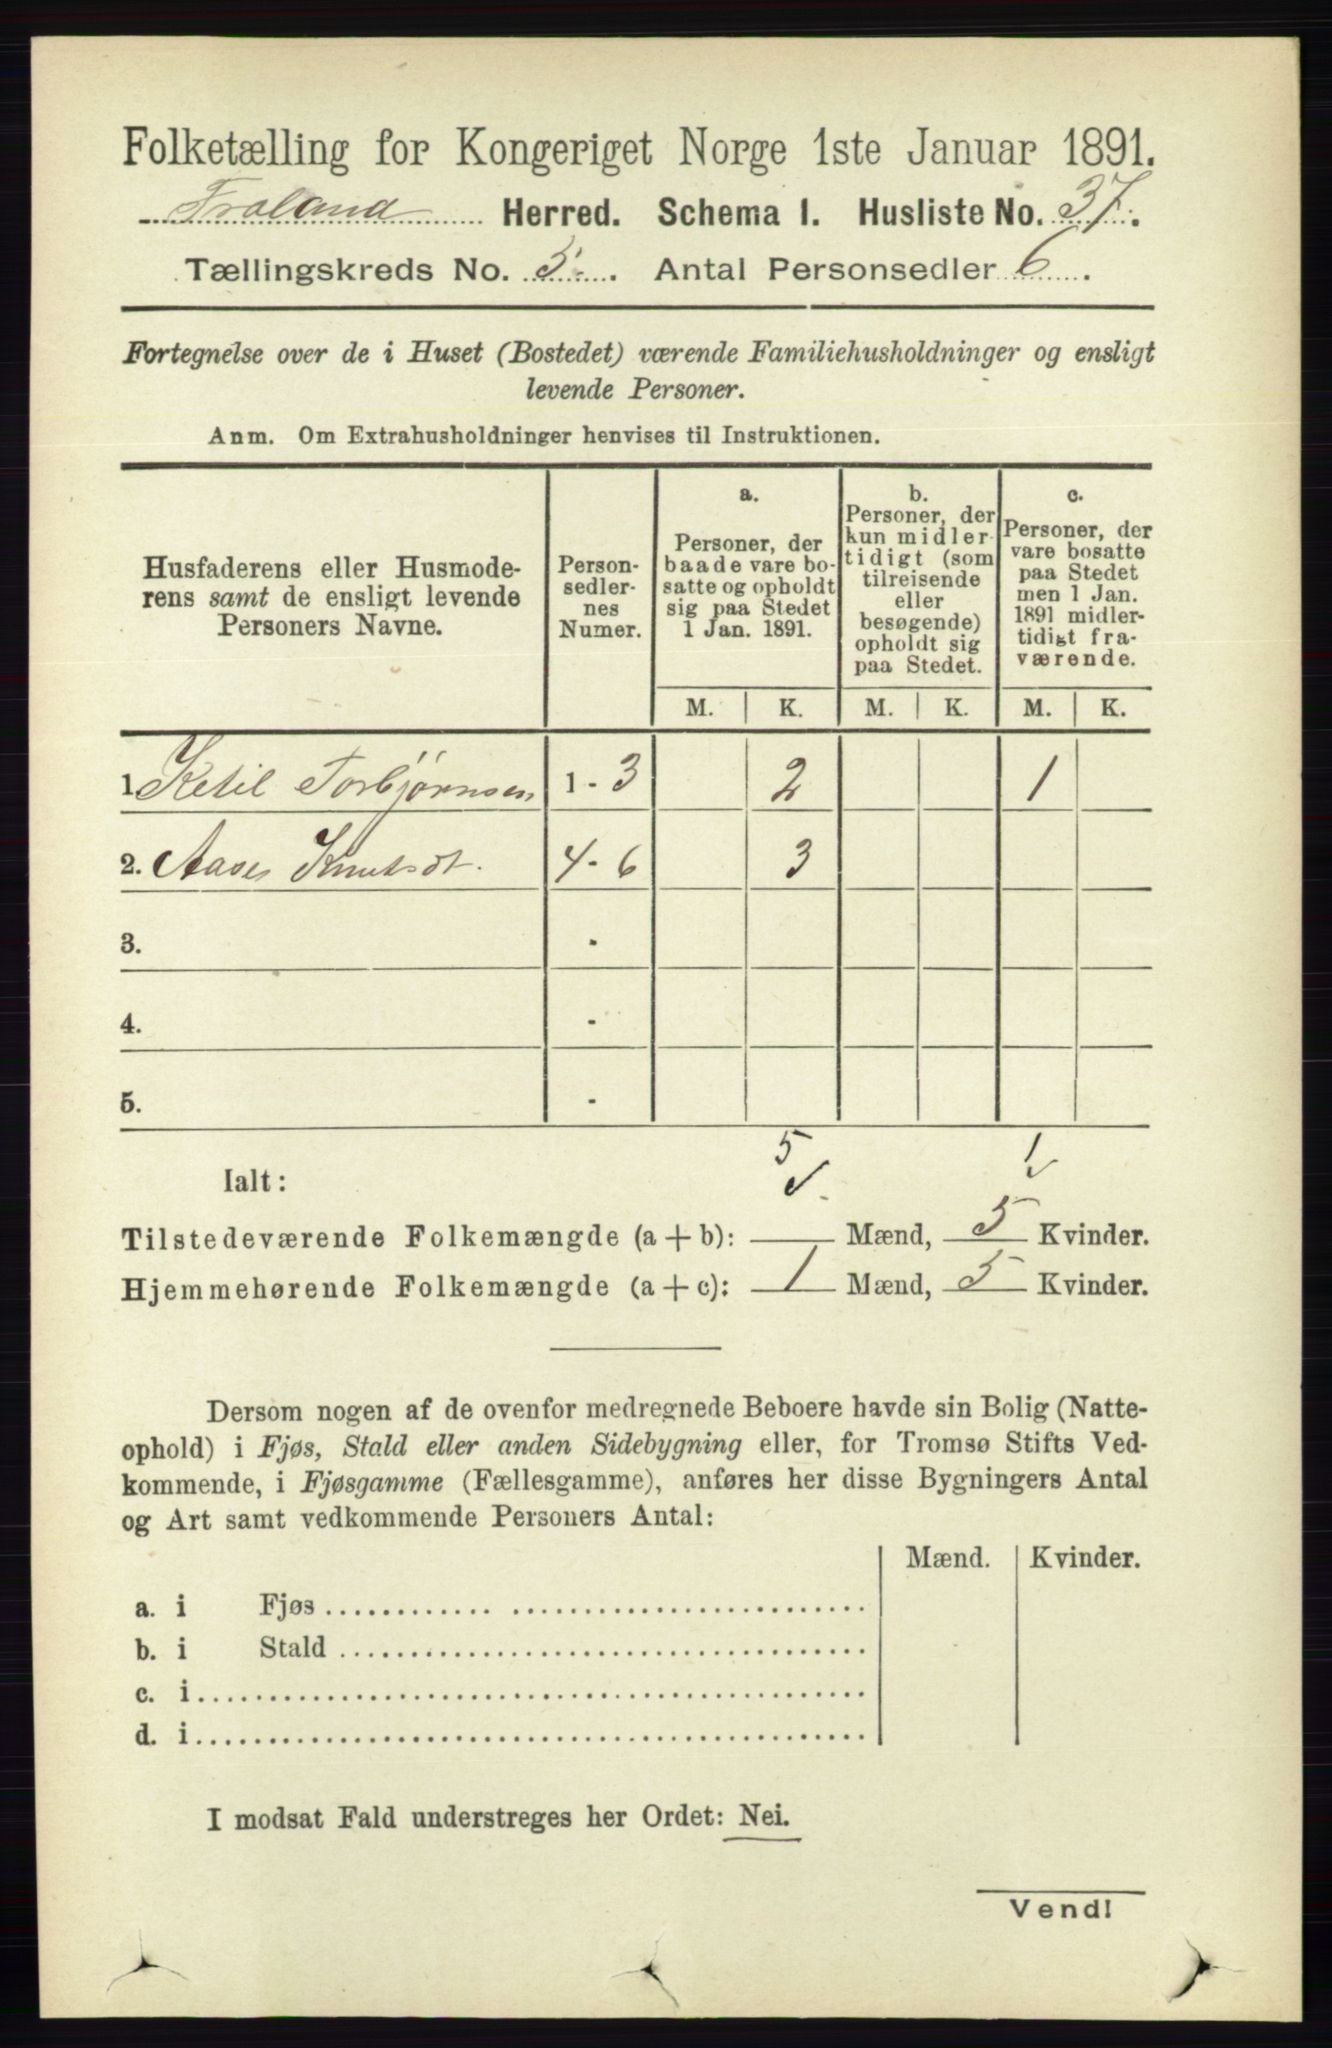 Folketælling for Kongeriget Norge 1ste Januar 1891.
Froland Herred. Schema 1. Husliste No. 37.
Tællingskreds No. 5. Antal Personsedler 6.
Fortegnelse over de i Huset (Bostedet) værende Familiehusholdninger og ensligt
levende Personer.
Anm. Om Extrahusholdninger henvises til Instruktionen.
Husfaderens eller Husmode-
rens samt de ensligt levende
Personers Navne.
Person-
sedler-
nes
Numer.
a.
Personer, der
baade vare bo-
satte og opholdt
sig paa Stedet
1 Jan. 1891.
b.
Personer, der
kun midler-
tidigt (som
tilreisende
eller
besøgende)
opholdt sig
paa Stedet.
c.
Personer, der
vare bosatte
paa Stedet
men 1 Jan.
1891 midler-
tidigt fra-
værende.
M. K. M. K. M. K.
1. Ketil Torbjørnsen 1 - 3 2 1
2. Aase Knutsdt. 4 - 6 3
3. -
4. -
5. -
5 1
Ialt:
Tilstedeværende Folkemængde (a + b): — Mænd, 5 Kvinder.
Hjemmehørende Folkemængde (a + c): 1 Mænd, 5 Kvinder.
Dersom nogen af de ovenfor medregnede Beboere havde sin Bolig (Natte-
ophold) i Fjøs, Stald eller anden Sidebygning eller, for Tromsø Stifts Ved-
kommende, i Fjøsgamme (Fællesgamme), anføres her disse Bygningers Antal
og Art samt vedkommende Personers Antal:
Mænd. Kvinder.
a. i Fjøs
b. i Stald
c. i
d. i
I modsat Fald understreges her Ordet: Nei.
Vend!